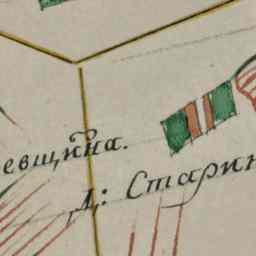 евщина.
Д: Старин